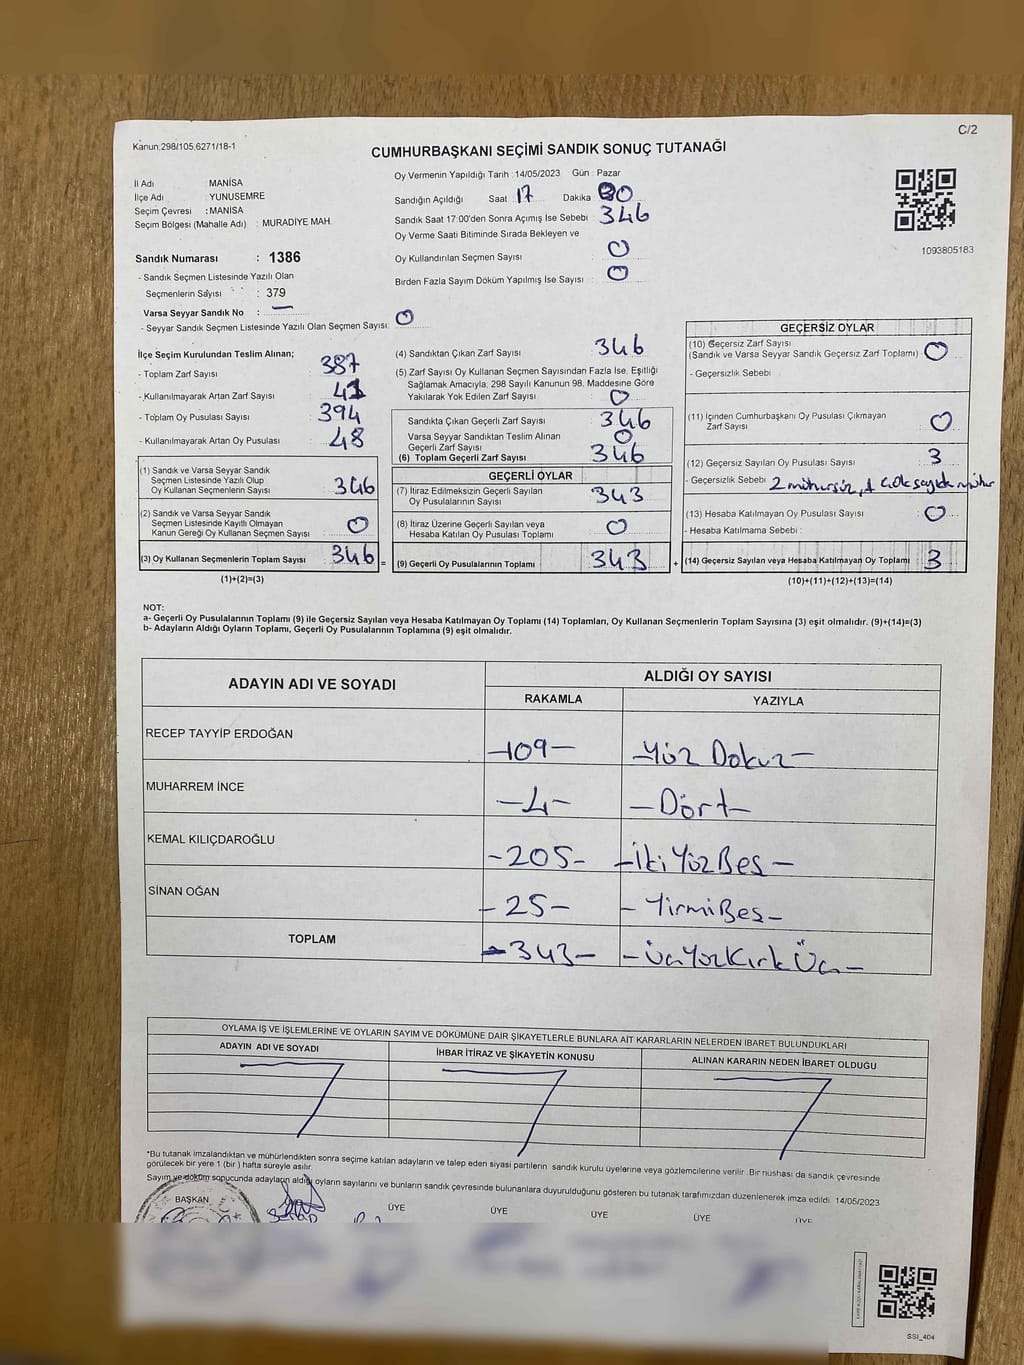 Kanun:298/105,6271/18-1
C/2
CUMHURBAŞKANI SEÇİMİ SANDIK SONUÇ TUTANAĞI
İl Adı MANİSA
İlçe Adı : YUNUSEMRE
Seçim Çevresi : MANİSA
Seçim Bölgesi (Mahalle Adı) : MURADİYE MAH.
Oy Vermenin Yapıldığı Tarih : 14/05/2023 Gün : Pazar
Sandığın Açıldığı Saat 17 Dakika
Sandık Saat 17:00'den Sonra Açımış İse Sebebi 346
Oy Verme Saati Bitiminde Sırada Bekleyen ve
Oy Kullandırılan Seçmen Sayısı 0
Birden Fazla Sayım Döküm Yapılmış İse Sayısı 0
1093805183
Sandık Numarası : 1386
- Sandık Seçmen Listesinde Yazılı Olan
Seçmenlerin Sayısı : 379
Varsa Seyyar Sandık No : —
- Seyyar Sandık Seçmen Listesinde Yazılı Olan Seçmen Sayısı: 0
İlçe Seçim Kurulundan Teslim Alınan;
- Toplam Zarf Sayısı 387
- Kullanılmayarak Artan Zarf Sayısı 41
- Toplam Oy Pusulası Sayısı 394
- Kullanılmayarak Artan Oy Pusulası 48
(1) Sandık ve Varsa Seyyar Sandık
Seçmen Listesinde Yazılı Olup
Oy Kullanan Seçmenlerin Sayısı 346
(2) Sandık ve Varsa Seyyar Sandık
Seçmen Listesinde Kayıtlı Olmayan
Kanun Gereği Oy Kullanan Seçmen Sayısı 0
(3) Oy Kullanan Seçmenlerin Toplam Sayısı 346 =
(1)+(2)=(3)
(4) Sandıktan Çıkan Zarf Sayısı 346
(5) Zarf Sayısı Oy Kullanan Seçmen Sayısından Fazla İse, Eşitliği
Sağlamak Amacıyla; 298 Sayılı Kanunun 98. Maddesine Göre
Yakılarak Yok Edilen Zarf Sayısı 0
Sandıkta Çıkan Geçerli Zarf Sayısı 346
Varsa Seyyar Sandıktan Teslim Alınan
Geçerli Zarf Sayısı 0
(6) Toplam Geçerli Zarf Sayısı 346
GEÇERLİ OYLAR
(7) İtiraz Edilmeksizin Geçerli Sayılan
Oy Pusulalarının Sayısı 343
(8) İtiraz Üzerine Geçerli Sayılan veya
Hesaba Katılan Oy Pusulası Toplamı 0
(9) Geçerli Oy Pusulalarının Toplamı 343 +
GEÇERSİZ OYLAR
(10) Geçersiz Zarf Sayısı
(Sandık ve Varsa Seyyar Sandık Geçersiz Zarf Toplamı) 0
- Geçersizlik Sebebi
(11) İçinden Cumhurbaşkanı Oy Pusulası Çıkmayan
Zarf Sayısı 0
(12) Geçersiz Sayılan Oy Pusulası Sayısı 3
- Geçersizlik Sebebi 2 mühürsüz, 1 çok sayıda mühür
(13) Hesaba Katılmayan Oy Pusulası Sayısı 0
- Hesaba Katılmama Sebebi :
(14) Geçersiz Sayılan veya Hesaba Katılmayan Oy Toplamı 3
(10)+(11)+(12)+(13)=(14)
NOT:
a- Geçerli Oy Pusulalarının Toplamı (9) ile Geçersiz Sayılan veya Hesaba Katılmayan Oy Toplamı (14) Toplamları, Oy Kullanan Seçmenlerin Toplam Sayısına (3) eşit olmalıdır. (9)+(14)=(3)
b- Adayların Aldığı Oyların Toplamı, Geçerli Oy Pusulalarının Toplamına (9) eşit olmalıdır.
ADAYIN ADI VE SOYADI
ALDIĞI OY SAYISI
RAKAMLA YAZIYLA
RECEP TAYYİP ERDOĞAN -109- -Yüz Dokuz-
MUHARREM İNCE -4- -Dört-
KEMAL KILIÇDAROĞLU -205- -İkiYüzBeş-
SİNAN OĞAN -25- -YirmiBeş-
TOPLAM -343- -ÜçYüzKırkÜç-
OYLAMA İŞ VE İŞLEMLERİNE VE OYLARIN SAYIM VE DÖKÜMÜNE DAİR ŞİKAYETLERLE BUNLARA AİT KARARLARIN NELERDEN İBARET BULUNDUKLARI
ADAYIN ADI VE SOYADI İHBAR İTİRAZ VE ŞİKAYETİN KONUSU ALINAN KARARIN NEDEN İBARET OLDUĞU
*Bu tutanak imzalandıktan ve mühürlendikten sonra seçime katılan adayların ve talep eden siyasi partilerin sandık kurulu üyelerine veya gözlemcilerine verilir. Bir nüshası da sandık çevresinde
görülecek bir yere 1 (bir) hafta süreyle asılır.
Sayım ve döküm sonucunda adayların aldığı oyların sayılarını ve bunların sandık çevresinde bulunanlara duyurulduğunu gösteren bu tutanak tarafımızdan düzenlenerek imza edildi. 14/05/2023
BAŞKAN ÜYE ÜYE ÜYE ÜYE ÜYE
SSI_404